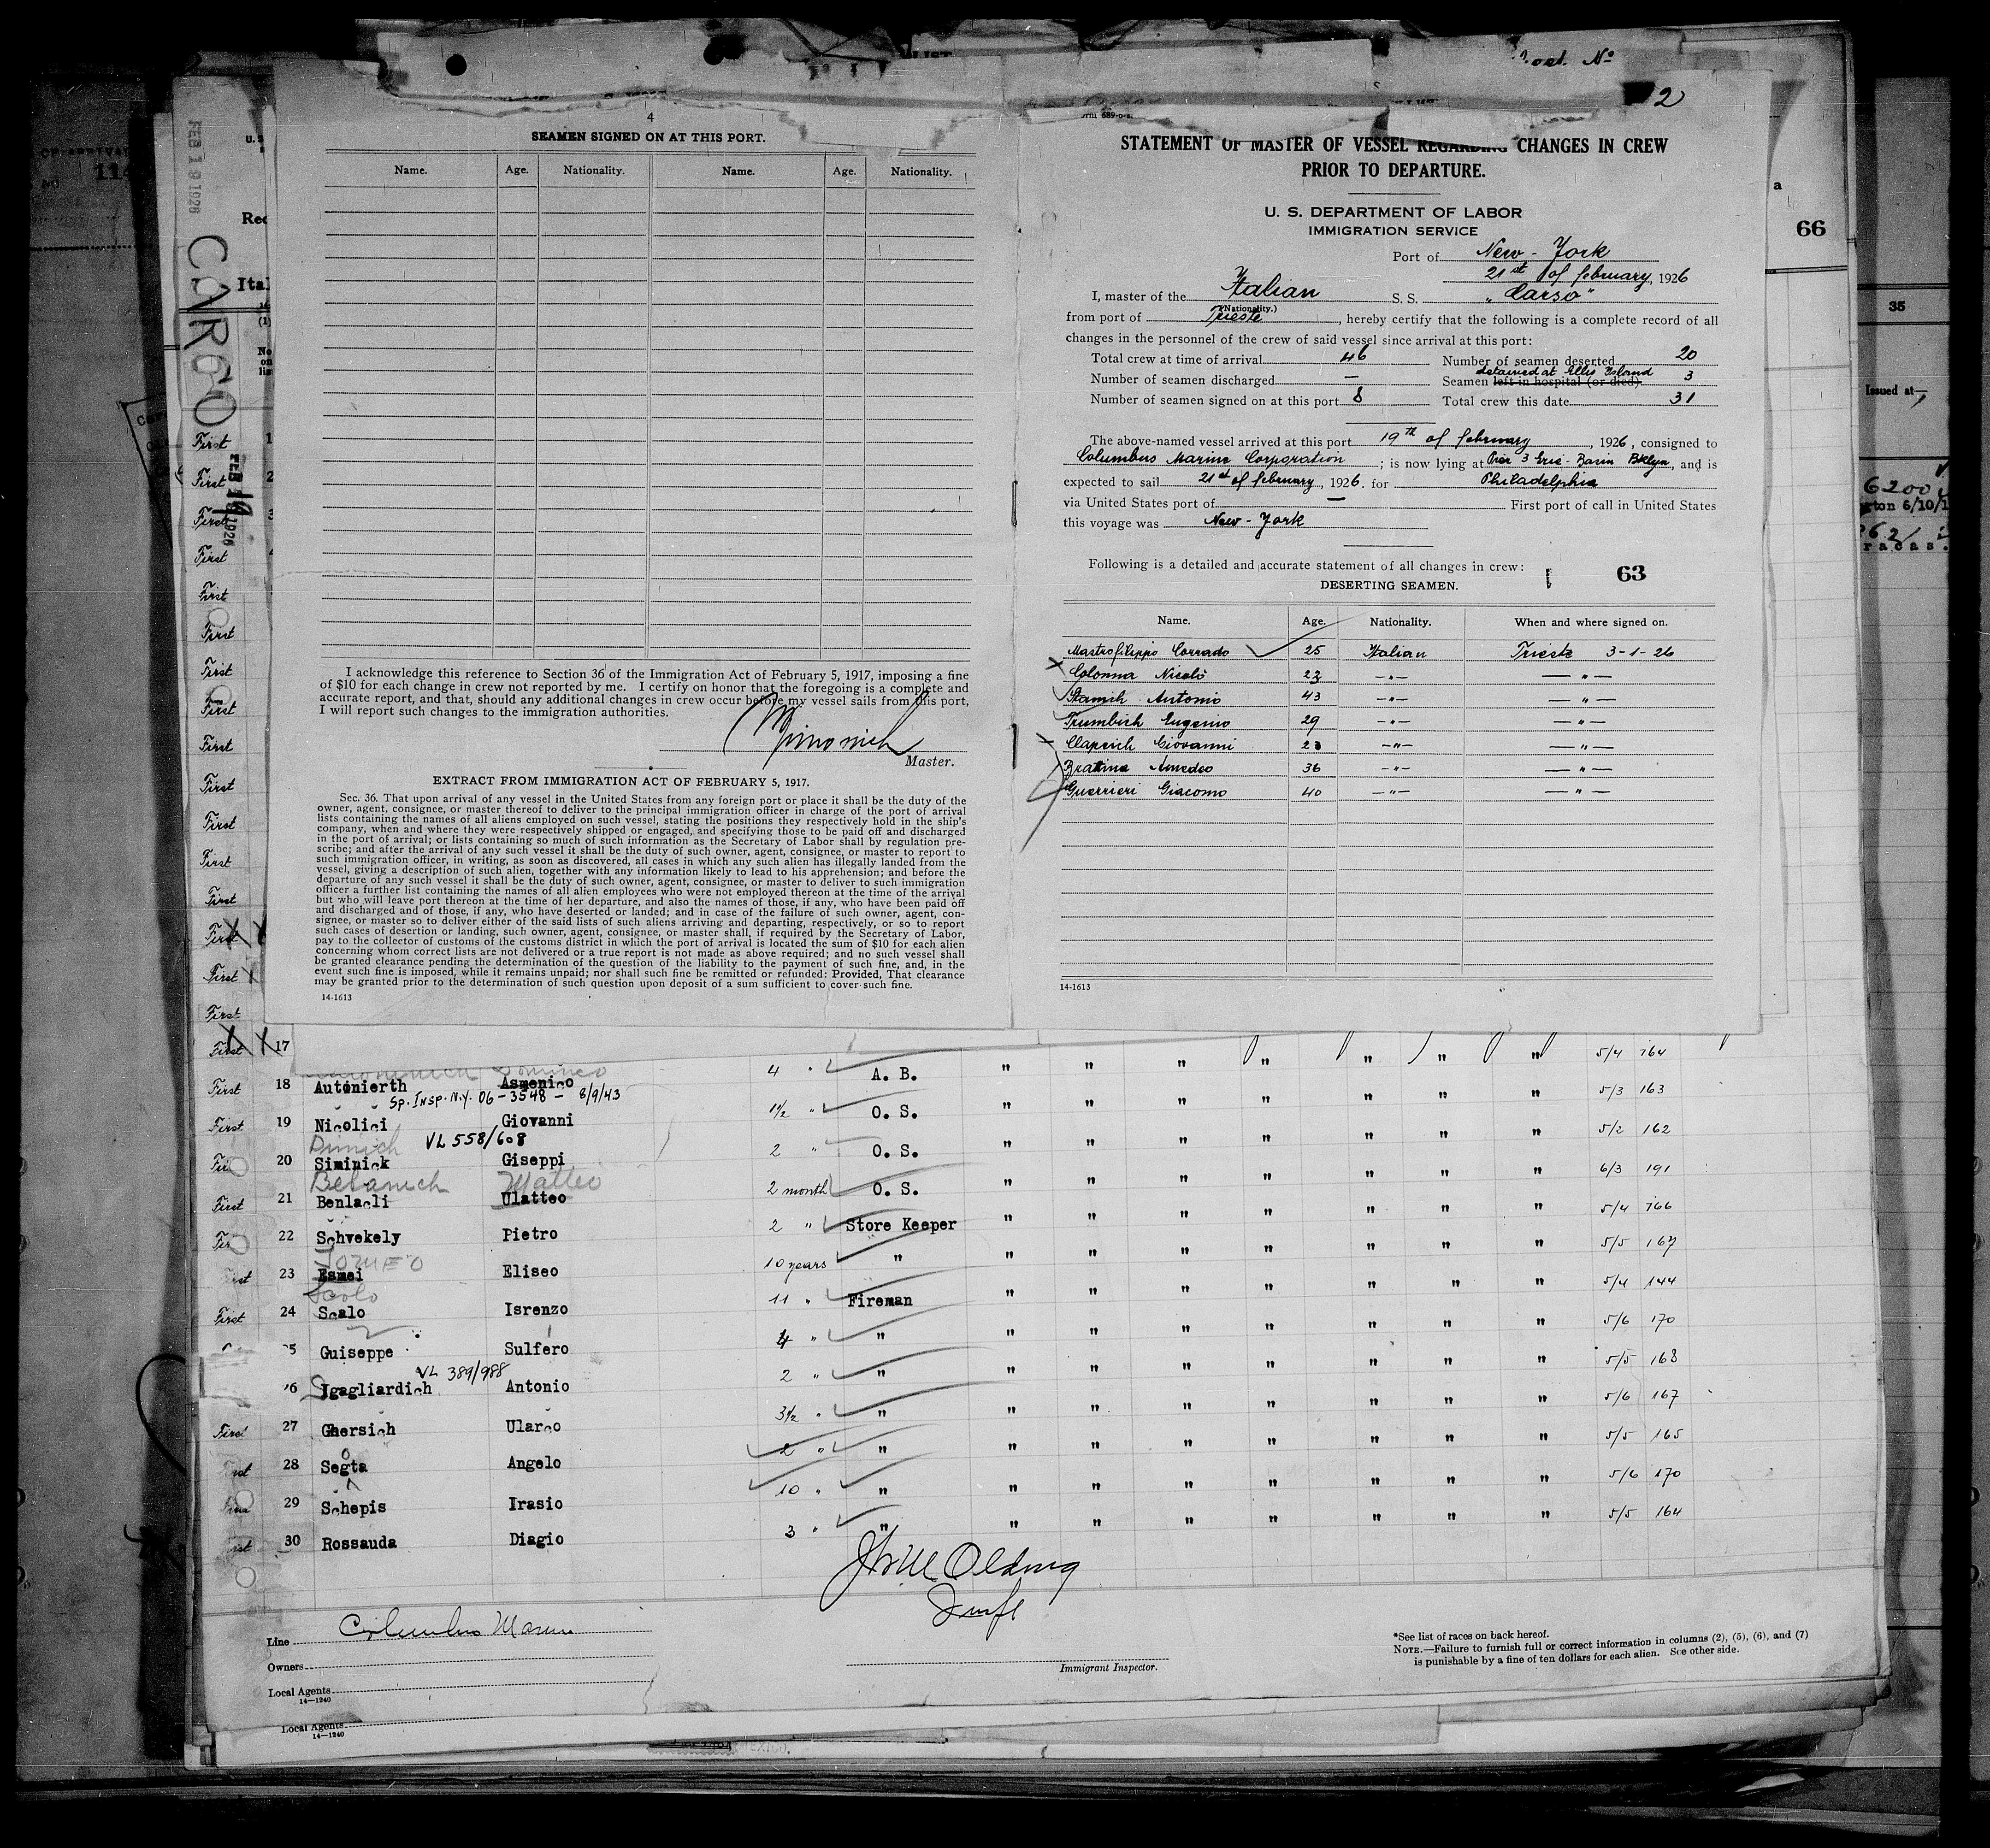 LIST
2
4
SEAMEN SIGNED ON AT THIS PORT.
Name. Age. Nationality. Name. Age. Nationality.
I acknowledge this reference to Section 36 of the Immigration Act of February 5, 1917, imposing a fine
of $10 for each change in crew not reported by me. I certify on honor that the foregoing is a complete and
accurate report, and that, should any additional changes in crew occur before my vessel sails from this port,
I will report such changes to the immigration authorities.
Master.
EXTRACT FROM IMMIGRATION ACT OF FEBRUARY 5, 1917.
Sec. 36. That upon arrival of any vessel in the United States from any foreign port or place it shall be the duty of the
owner, agent, consignee, or master thereof to deliver to the principal immigration officer in charge of the port of arrival
lists containing the names of all aliens employed on such vessel, stating the positions they respectively hold in the ship's
company, when and where they were respectively shipped or engaged, and specifying those to be paid off and discharged
in the port of arrival; or lists containing so much of such information as the Secretary of Labor shall by regulation pre-
scribe; and after the arrival of any such vessel it shall be the duty of such owner, agent, consignee, or master to report to
such immigration officer, in writing, as soon as discovered, all cases in which any such alien has illegally landed from the
vessel, giving a description of such alien, together with any information likely to lead to his apprehension; and before the
departure of any such vessel it shall be the duty of such owner, agent, consignee, or master to deliver to such immigration
officer a further list containing the names of all alien employees who were not employed thereon at the time of the arrival
but who will leave port thereon at the time of her departure, and also the names of those, if any, who have been paid off
and discharged and of those, if any, who have deserted or landed; and in case of the failure of such owner, agent, con-
signee, or master so to deliver either of the said lists of such aliens arriving and departing, respectively, or so to report
such cases of desertion or landing, such owner, agent, consignee, or master shall, if required by the Secretary of Labor,
pay to the collector of customs of the customs district in which the port of arrival is located the sum of $10 for each alien
concerning whom correct lists are not delivered or a true report is not made as above required; and no such vessel shall
be granted clearance pending the determination of the question of the liability to the payment of such fine, and, in the
event such fine is imposed, while it remains unpaid; nor shall such fine be remitted or refunded: Provided, That clearance
may be granted prior to the determination of such question upon deposit of a sum sufficient to cover such fine.
14-1613
STATEMENT OF MASTER OF VESSEL REGARDING CHANGES IN CREW
PRIOR TO DEPARTURE.
U. S. DEPARTMENT OF LABOR
IMMIGRATION SERVICE
Port of New-York
21st of february, 1926
I, master of the Italian S. S. "Carso"
(Nationality.)
from port of Trieste, hereby certify that the following is a complete record of all
changes in the personnel of the crew of said vessel since arrival at this port:
Total crew at time of arrival 46 Number of seamen deserted 20
detained at Ellis Island
Number of seamen discharged — Seamen left in hospital (or died) 3
Number of seamen signed on at this port 8 Total crew this date 31
The above-named vessel arrived at this port 19th of february, 1926, consigned to
Columbus Marine Corporation; is now lying at Pier 3 Erie-Basin Bklyn, and is
expected to sail 21st of february, 1926. for Philadelphia
via United States port of — First port of call in United States
this voyage was New-York
Following is a detailed and accurate statement of all changes in crew:
63
DESERTING SEAMEN.
Name. Age. Nationality. When and where signed on.
Mastrofilippo Corrado 25 Italian Trieste 3-1-26
Colonna Nicolò 23 -"- -"-
Stamih Antonio 43 -"- -"-
Trumbich Eugenio 29 -"- -"-
Clapcich Giovanni 23 -"- -"-
Bratina Amedeo 36 -"- -"-
Guerrieri Giacomo 40 -"- -"-
14-1613
66
35
Issued at
FEB 19 1926
CARGO
FEB 19 1926
First 17 5/4 164
First 18 Autonierth Asmenico 4 " A. B. " " " " " " " 5/3 163
Sp. Insp. N.Y. 06-3548 - 8/9/43
First 19 Nicolici Giovanni 1½ " O. S. " " " " " " " 5/2 162
Dimich VL 558/608
20 Siminick Giseppi 2 " O. S. " " " " " " " 6/3 191
Belanich Matteo
First 21 Benlacli Ulatteo 2 month O. S. " " " " " " " 5/4 166
22 Schvekely Pietro 2 " Store Keeper " " " " " " " 5/5 167
Tomeo
First 23 Esmei Eliseo 10 years " " " " " " " " 5/4 144
Scolo
First 24 Scalo Isrenzo 11 " Fireman " " " " " " " 5/6 170
25 Guiseppe Sulfero 4 " " " " " " " " " 5/5 168
VL 389/988
26 Igagliardich Antonio 2 " " " " " " " " " 5/6 167
First 27 Ghersich Ularco 3½ " " " " " " " " " 5/5 165
28 Segta Angelo 2 " " " " " " " " " 5/6 170
29 Schepis Irasio 10 " " " " " " " " " 5/5 164
30 Rossauda Diagio 3 " "
Line Columbus Marine
Owners
Local Agents
14-1240
Immigrant Inspector.
*See list of races on back hereof.
NOTE.—Failure to furnish full or correct information in columns (2), (5), (6), and (7)
is punishable by a fine of ten dollars for each alien. See other side.
Local Agents
14-1240